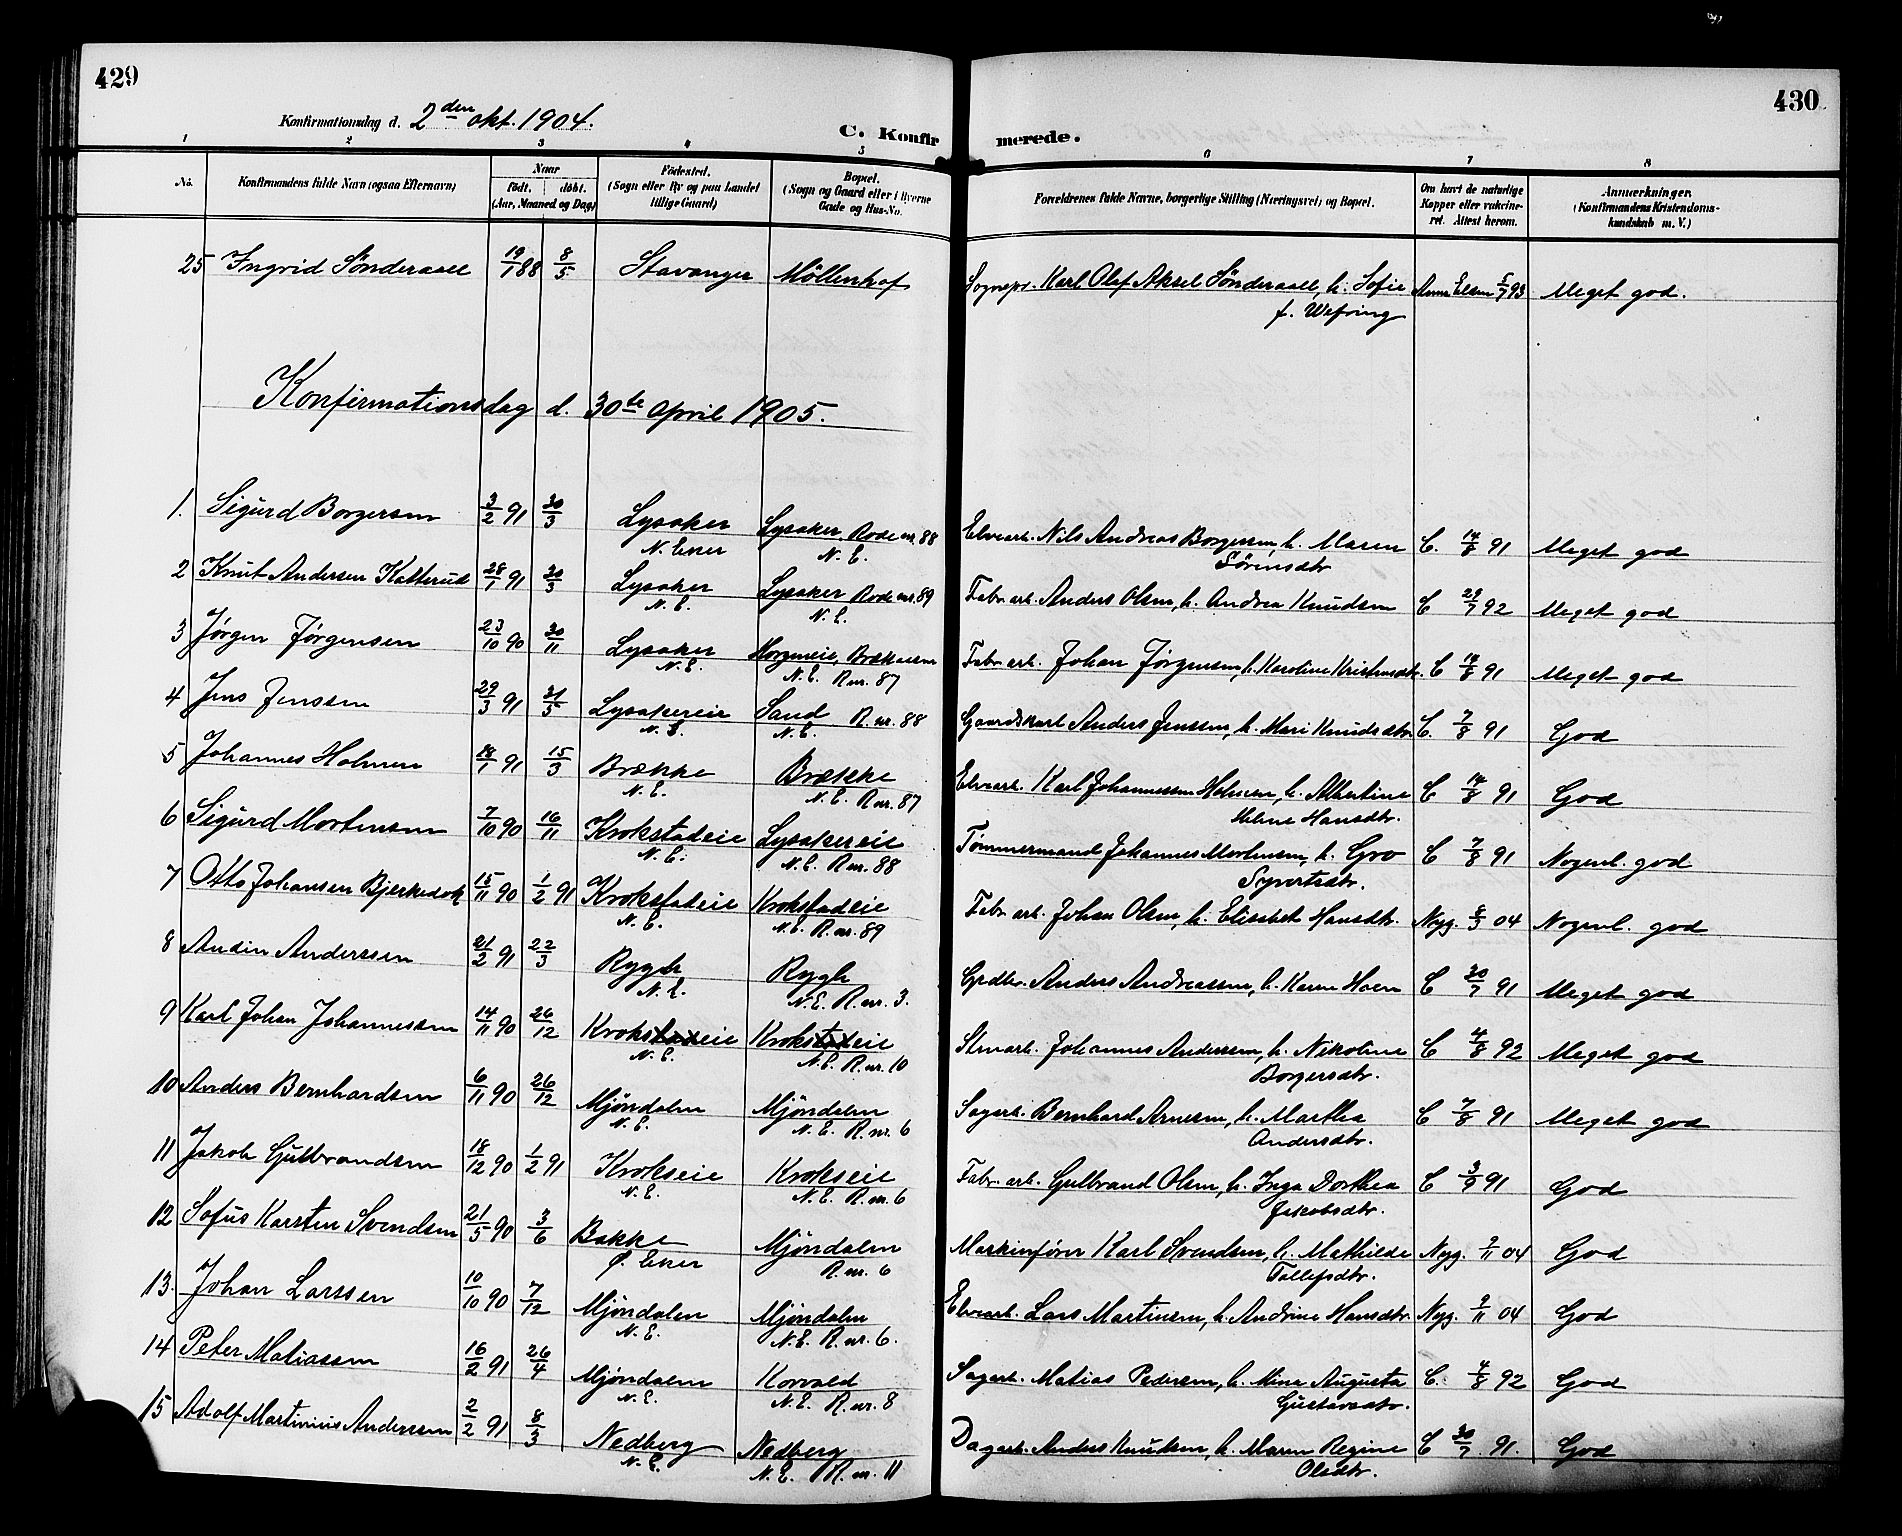 429
430
Konfirmationsdag d. 2den okt. 1904.
C. Konfirmerede.
1 2 3 4 5 6 7 8
No.
Konfirmandens fulde Navn (ogsaa Efternavn)
Naar
født. døbt.
(Aar, Maaned og Dag)
Fødested.
(Sogn eller By og paa Landet
tillige Gaard)
Bopæl.
(Sogn og Gaard eller i Byerne
Gade og Hus-No.
Forældrenes fulde Navne, borgerlige Stilling (Næringsvei) og Bopæl.
Om havt de naturlige
Kopper eller vakcine-
ret. Attest herom.
Anmærkninger.
(Konfirmandens Kristendoms-
kundskab m. V.)
25 Ingrid Sønderaal 19/1 88 8/5 Stavanger Möllenhof Sognepr. Karl Olaf Aksel Sønderaal, h. Sofie Anna Elsen 5/7 93 Meget god.
f. Wefring
Konfirmationsdag d. 30te april 1905.
1. Sigurd Borgersen 3/2 91 30/3 Lysaker Lysaker, Rode nr. 88 Elvearb. Nils Andreas Borgersen, h. Maren C. 14/8 91 Meget god
N. Eker N. E. Sörensdtr
2 Knut Andersen Katterud 28/1 91 30/3 Lysaker Lysaker Rode nr. 89 Fabr. arb. Anders Olsen, h. Andrea Knudsen C 29/7 92 Meget god
N. E. N. E.
3 Jørgen Jørgensen 23/10 90 30/11 Lysaker Horgeneie, Brækkeien Fabr. arb. Johan Jørgensen, h. Karoline Kristensdtr. C 14/8 91 Meget god
N. E. N. E. R nr. 87
4 Jens Jenssen 29/3 91 31/5 Lysakereie Sand R. nr. 88 Gaardskarl Anders Jenssen, h. Mari Knudsdtr. C. 7/8 91 God
N. E. N. E.
5 Johannes Holmen 18/1 91 15/3 Brække Brække Elvearb. Karl Johannessen Holmen, h. Albertine C 14/8 91 God
N. E. N. E. R nr. 87 Helene Hansdtr.
6 Sigurd Mortensen 7/10 90 16/11 Krokstadeie Lysakereie Tømmermand Johannes Mortensen, h. Gro C 7/8 91 Nogenl. god
N. E. N. E. R nr. 88 Syvertsdtr.
7 Otto Johansen Bjerkedok 15/11 90 1/2 91 Krokstadeie Krokstadeie Fabr. arb. Johan Olsen, h. Elisabet Hansdtr. Nyg. 8/3 04 Nogenl. god
N. E. N. E. R. nr. 89
8 Audin Anderssen 21/2 91 22/3 Rygh Rygh Grdbr. Anders Andreassen, h. Karen Hoen C 30/7 91 Meget god
N. E. N. E. R. nr. 3.
9 Karl Johan Johannessen 14/11 90 26/12 Krokstadeie Krokstadeie Stenarb. Johannes Andersen, h. Nikoline C 4/8 92 Meget god
N. E. N. E. R. nr. 10 Borgersdtr.
10 Anders Bernhardsen 6/11 90 26/12 Mjöndalen Mjöndalen Sagarb. Bernhard Arnesen, h. Marthea C 7/8 91 Meget god
N. E. N. E. R. nr. 6 Andersdtr.
11 Jakob Gulbrandsen 18/12 90 1/2 91 Krokseie Krokseie Fabr. arb. Gulbrand Olsen, h. Inga Dorthea C 3/9 91 God
N. E. N. E. R. nr. 6 Jakobsdtr.
12 Sofus Karsten Svendsen 21/5 90 3/6 Bakke Mjöndalen Maskinfører Karl Svendsen, h. Mathilde Nyg. 9/11 04 God
Ø. Eker R. nr. 6 Tollefsdtr.
13. Johan Larssen 10/10 90 7/12 Mjöndalen Mjöndalen Elvearb. Lars Martinsen, h. Andrine Hansdtr. Nyg. 9/11 04 God
N. E. N. E. R. nr. 6.
14 Peter Matiassen 16/2 91 26/4 Mjöndalen Korvald Sagarb. Matias Pedersen, h. Mina Augusta C. 4/8 92 God
N. E. N. E. R. nr. 8 Gustavsdtr.
15 Adolf Martinius Andersen 2/2 91 8/3 Nedberg Nedberg Dagarb. Anders Knudsen, h. Maren Regine C 30/7 91. God
N. E. N. E. R. nr. 11 Olsdtr.